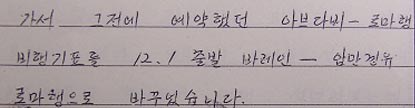 가서 그전에 예약했던 아브다비-로마행
비행기표를 12.1 출발 바레인 - 암만경유
로마행으로 바꾸었습니다.